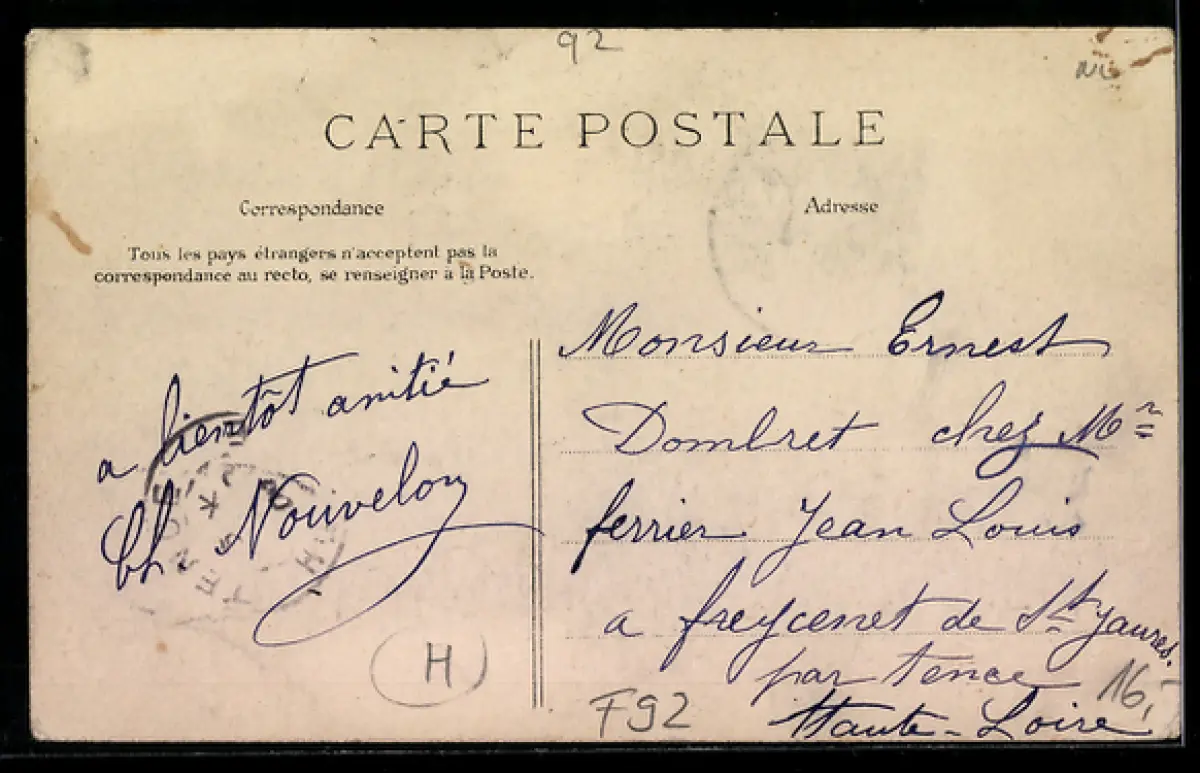 92
CARTE POSTALE
Correspondance
Adresse
Tous les pays étrangers n'acceptent pas la
correspondance au recto, se renseigner à la Poste.
a bientôt amitié
Ch. Nouvelon
H
Monsieur Ernest
Dombret chez Mr
ferrier Jean Louis
a freycenet de St Jaures.
par tence
Haute-Loire
F92
16,-